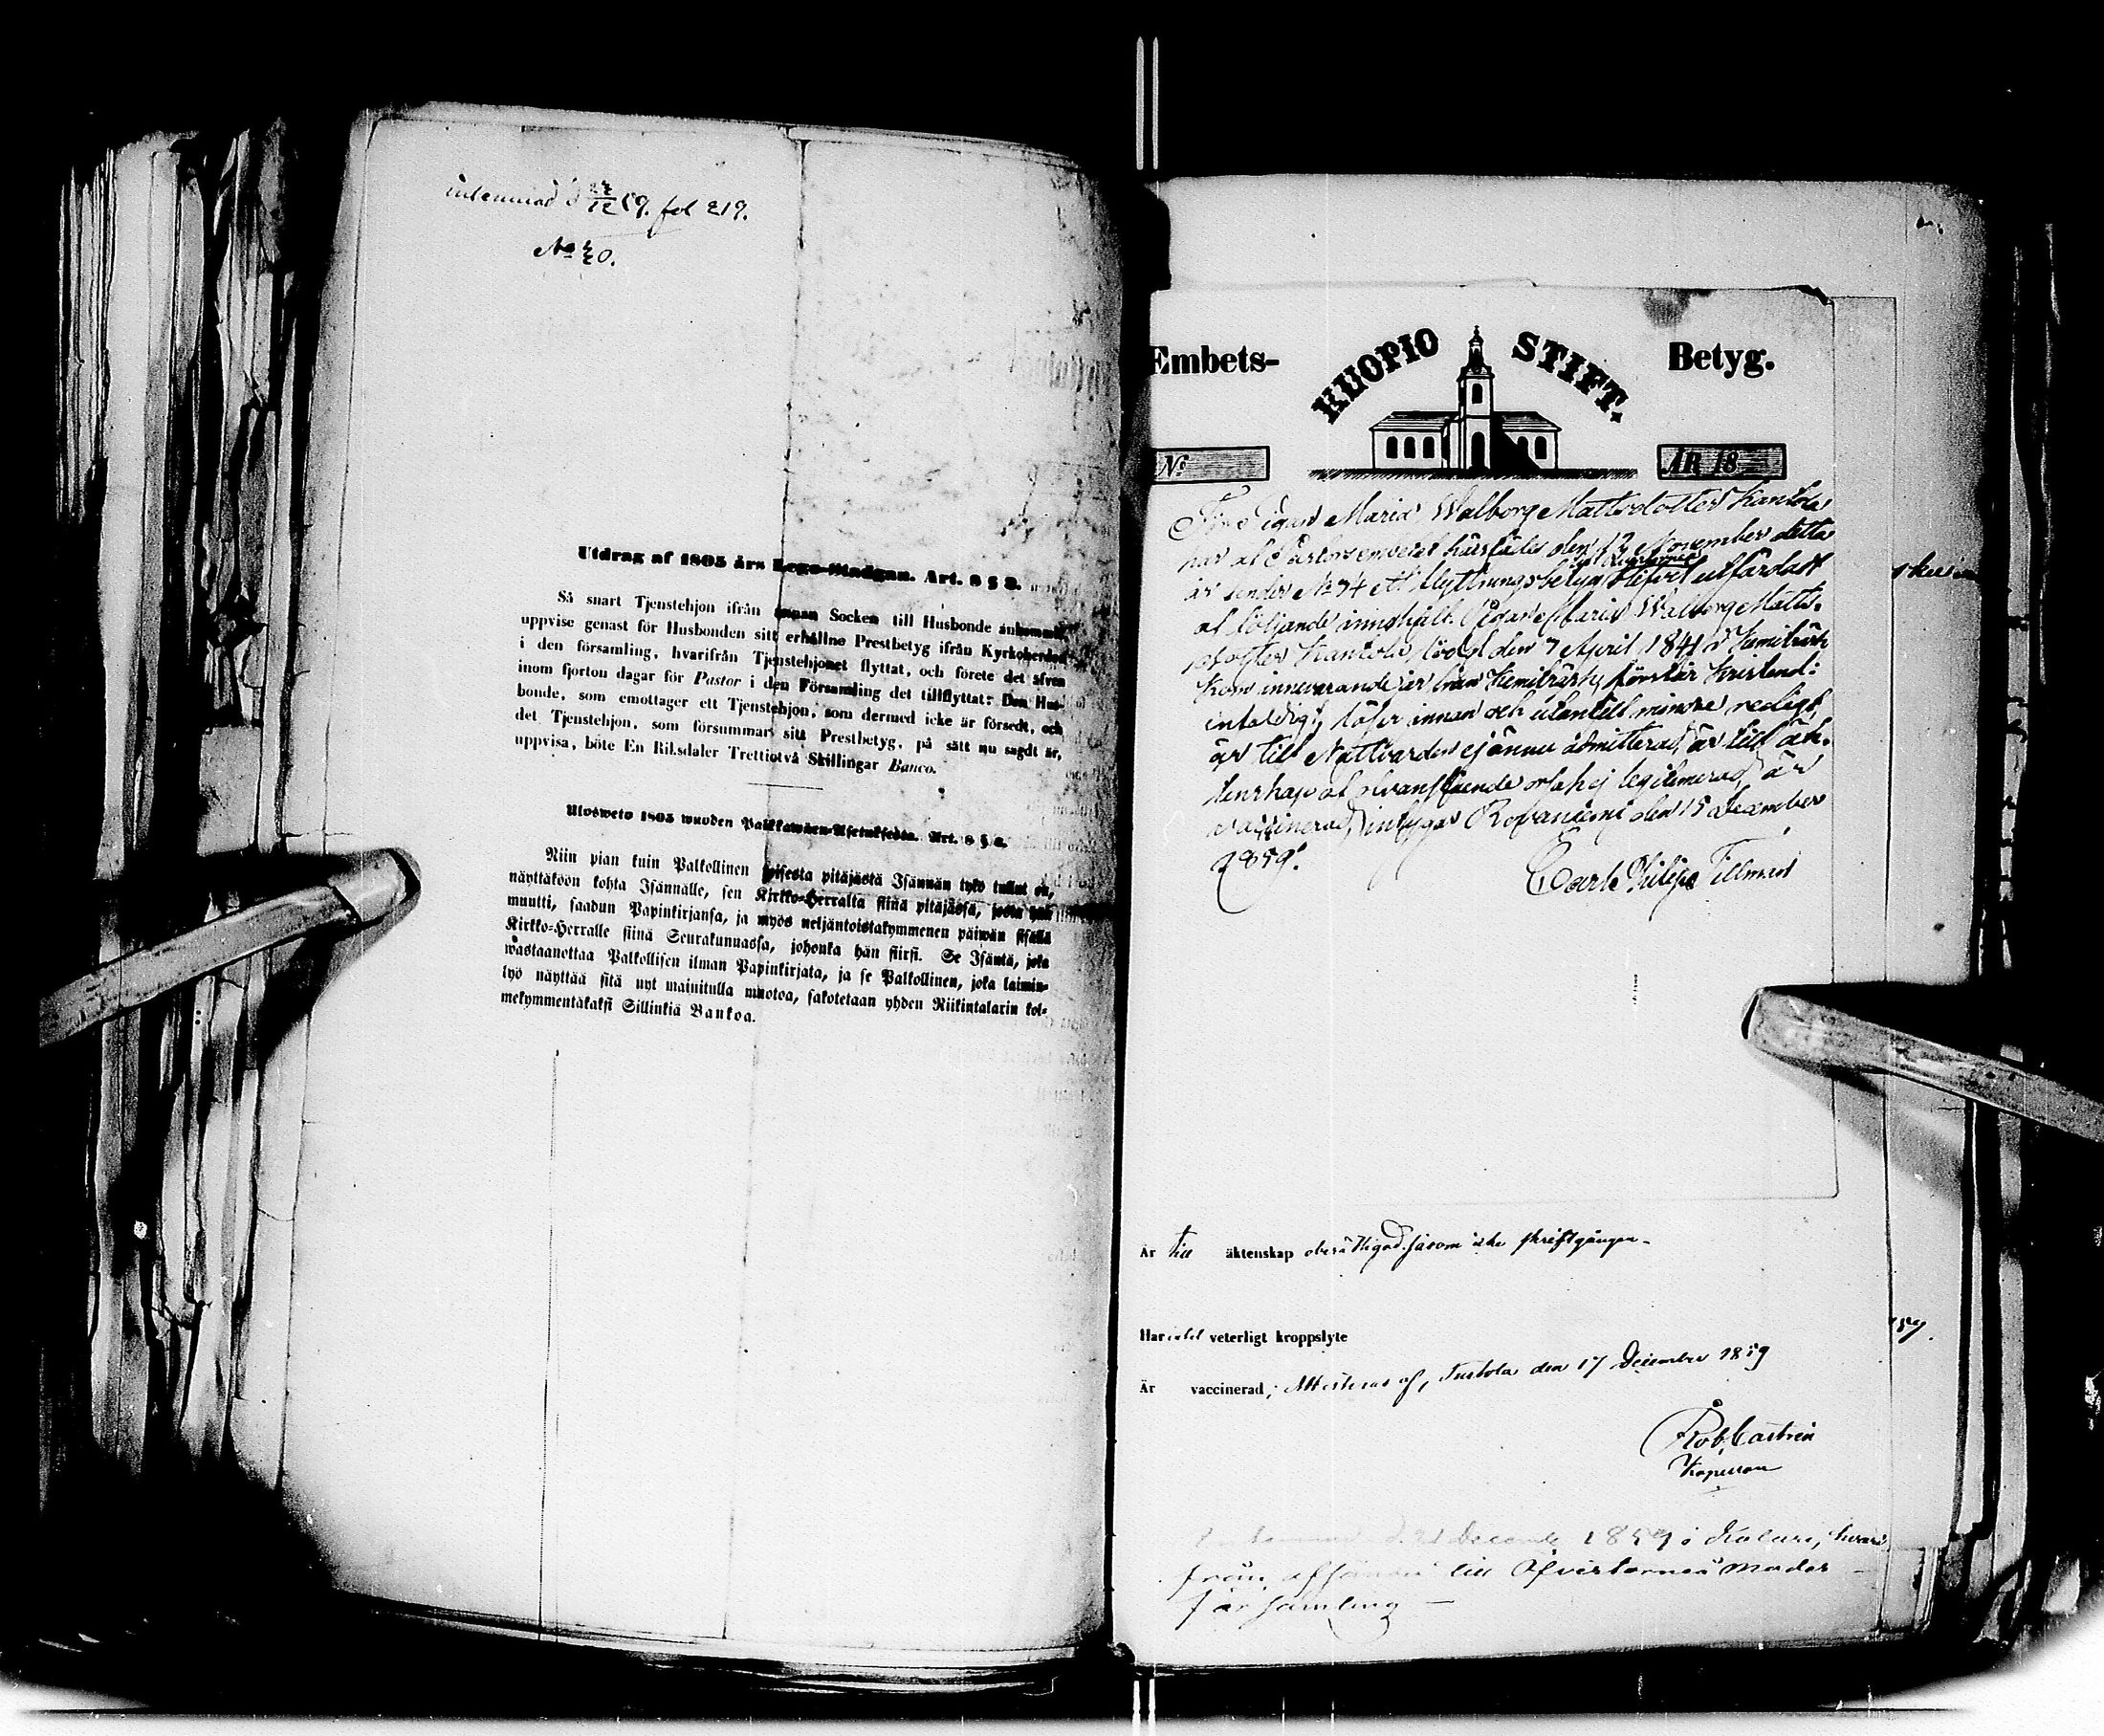 inlemnad d 22/12 59. fol 219.
No 20.
Utdrag af 1805 års Lego-Stadgan. Art. 8 § 2.
Så snart Tjenstehjon ifrån annan Socken till Husbonde ankommit,
uppvise genast för Husbonden sitt erhållne Prestbetyg ifrån Kyrkoherden
i den församling, hvarifrån Tjenstehjonet flyttat, och förete det äfven
inom fjorton dagar för Pastor i den Församling det tillflyttat: Den Hus-
bonde, som emottager ett Tjenstehjon, som dermed icke är försedt, och
det Tjenstehjon, som försummar sitt Prestbetyg, på sätt nu sagdt är,
uppvisa, böte En Riksdaler Trettiotvå Skillingar Banco.
Ulosweto 1805 wuoden Palkkawäen-Asetuksesta. Art. 8 § 2.
Niin pian kuin Palkollinen toisesta pitäjästä Isännän tykö tullut on,
näyttäköön kohta Isännälle, sen Kirkko-Herralta siinä pitäjässä, josta hän
muutti, saadun Papinkirjansa, ja myös neljäntoistakymmenen päiwän sisällä
Kirkko-Herralle siinä Seurakunnassa, johonka hän siirsi. Se Isäntä, joka
wastaanottaa Palkollisen ilman Papinkirjata, ja se Palkollinen, joka laimin-
lyö näyttää sitä nyt mainitulla muotoa, sakotetaan yhden Riikintalarin kol-
mekymmentäkaksi Sillinkiä Bankoa.
Embets- KUOPIO STIFT. Betyg.
No ÅR 18
För Pigan Maria Walborg Mattsdotter Kantola
har af Pastorsembetet härstädes den 12 November detta
år under No 74 ett flyttningsbetyg till blifvit utfärdadt
af följande innehåll: Pigan Maria Walborg Matts-
dotter Kantola, född den 7 April 1841 i Kemiträsk
kom innevarande år från Kemiträsk, förstår Kristend:
enfaldigt, läser innan och utantill mindre redigt,
är till Nattvarden ej ännu admitterad, är till äk-
tenskap af ofvanstående orsak ej legitimerad, är
vaccinerad, intygar Rovaniemi den 15 December
1859.
Carl Philip Tillman
Är till äktenskap obesättligad såsom icke skriftgången
Har intet veterligt kroppslyte
Är vaccinerad; Attesteras af, Turtola den 17 December 1859
Rob. Castrén
Kapellan
d. 21 Decemb 1859 i Kolari, hvari
från till Öfvertorneå Moder
församling